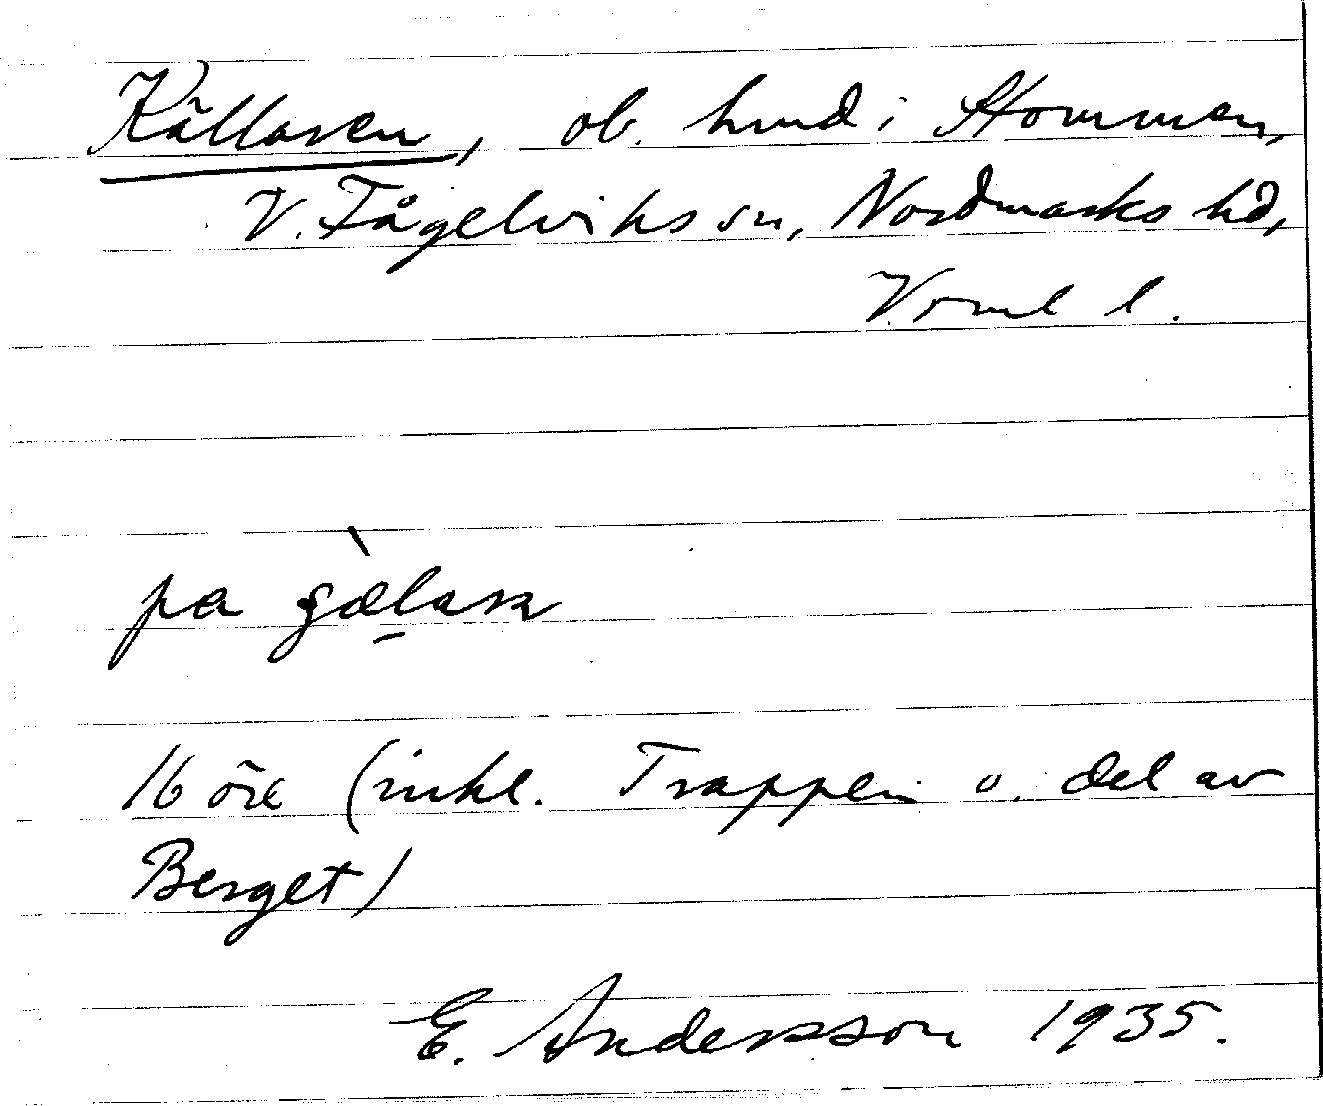 Källaren, ob. hmd i Stommen,
V. Fågelviks sn, Nordmarks hd,
Värml l.
pa
16 öre (inkl. Trappen o. del av
Berget)
E. Andersson 1935.